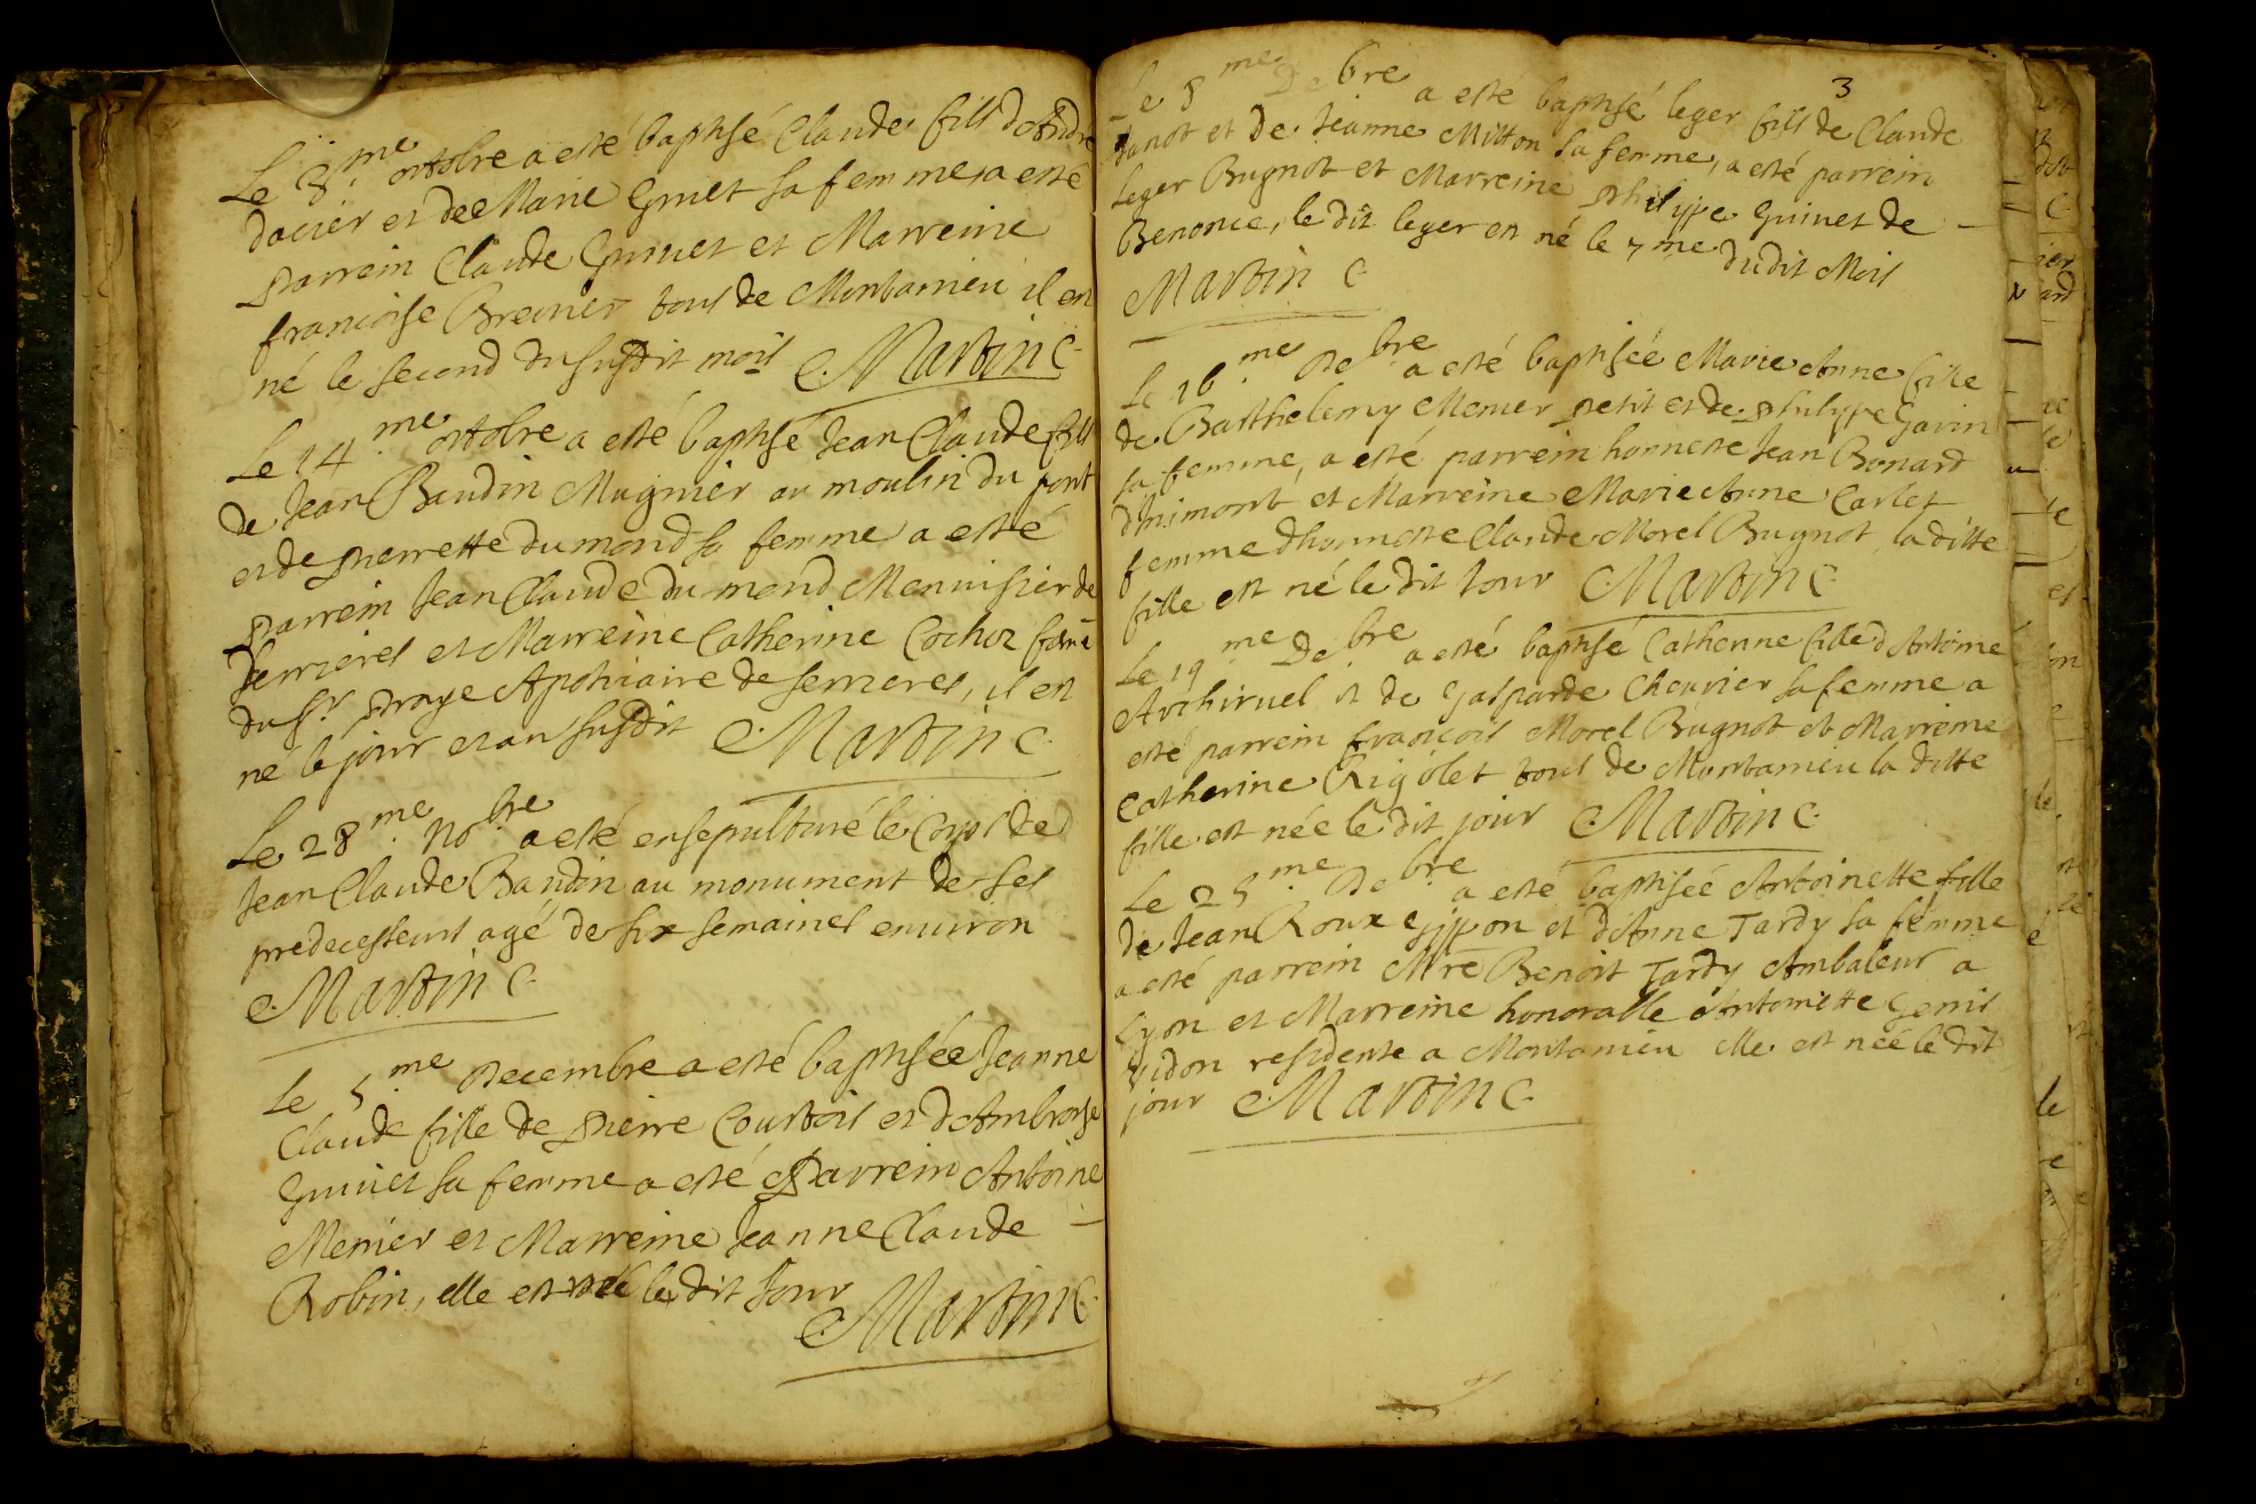 Le 8.me octobre a esté baptisé Claude fils d André
dacier et de Marie Guinet sa femme, a esté
parrein Claude Guinet et Marreine
francoise Breuner tous de Montanieu il est
né le second du susdit mois Martin C.
Le 14.me octobre a esté baptisé Jean Claude fils
de Jean Baudin Mugnier au moulin du pont
et de pierrette du mond sa femme a esté
parrein Jean Claude du mond Mennisier de
Serrieres et Marreine Catherine Cochoz feme
du Sr. proye Apothiaire de serrieres, il est
né le jour et an susdit Martin C.
Le 28.me No.bre a esté ensepulturé le Corps de
Jean Claude Baudin au monument de ses
predecesseurs agé de six semaines environ
Martin C.
Le 5.me Decembre a esté baptisée Jeanne
Claude fille de pierre Courtois et d Ambroise
Guinet sa femme a esté Parrein Antoine
Menier et Marreine Jeanne Claude
Robin, elle est née le dit Jour
Martin C.
3
Le 8.me De.bre a esté baptisé leger fils de Claude
Janot et de Jeanne Mitton sa femme, a esté parrein
Leger Bugnot et Marreine philippe Guinet de
Benonce, le dit leger est né le 7me. dudit Mois
Martin C.
Le 16.me De.bre a esté baptisée Marie Anne fille
de Barthelemy Menier petit et de philippe Gavin
sa femme, a esté parrein honneste Jean Bonard
d'Inimont et Marreine Marie Anne Carlet
femme d'honneste Claude Morel Bugnot, la ditte
fille est né le dit Jour Martin C.
Le 19.me De.bre a esté baptisé Catherine fille d Antoine
Archiruel et de Gasparde Cheuvier sa femme a
esté parrein françois Morel Bugnot et Marreine
Catherine Rigolet tous de Montanieu la ditte
fille est née le dit jour Martin C.
Le 25.me De.bre a esté baptiseé Antoinette fille
de Jean Roux et d'Anne Tardy sa femme
a esté parrein Mre Benoit Tardy Ambaleur a
Lyon et Marreine honorable Antoinette Genis
residente a Montanieu elle est née le dit
jour Martin C.